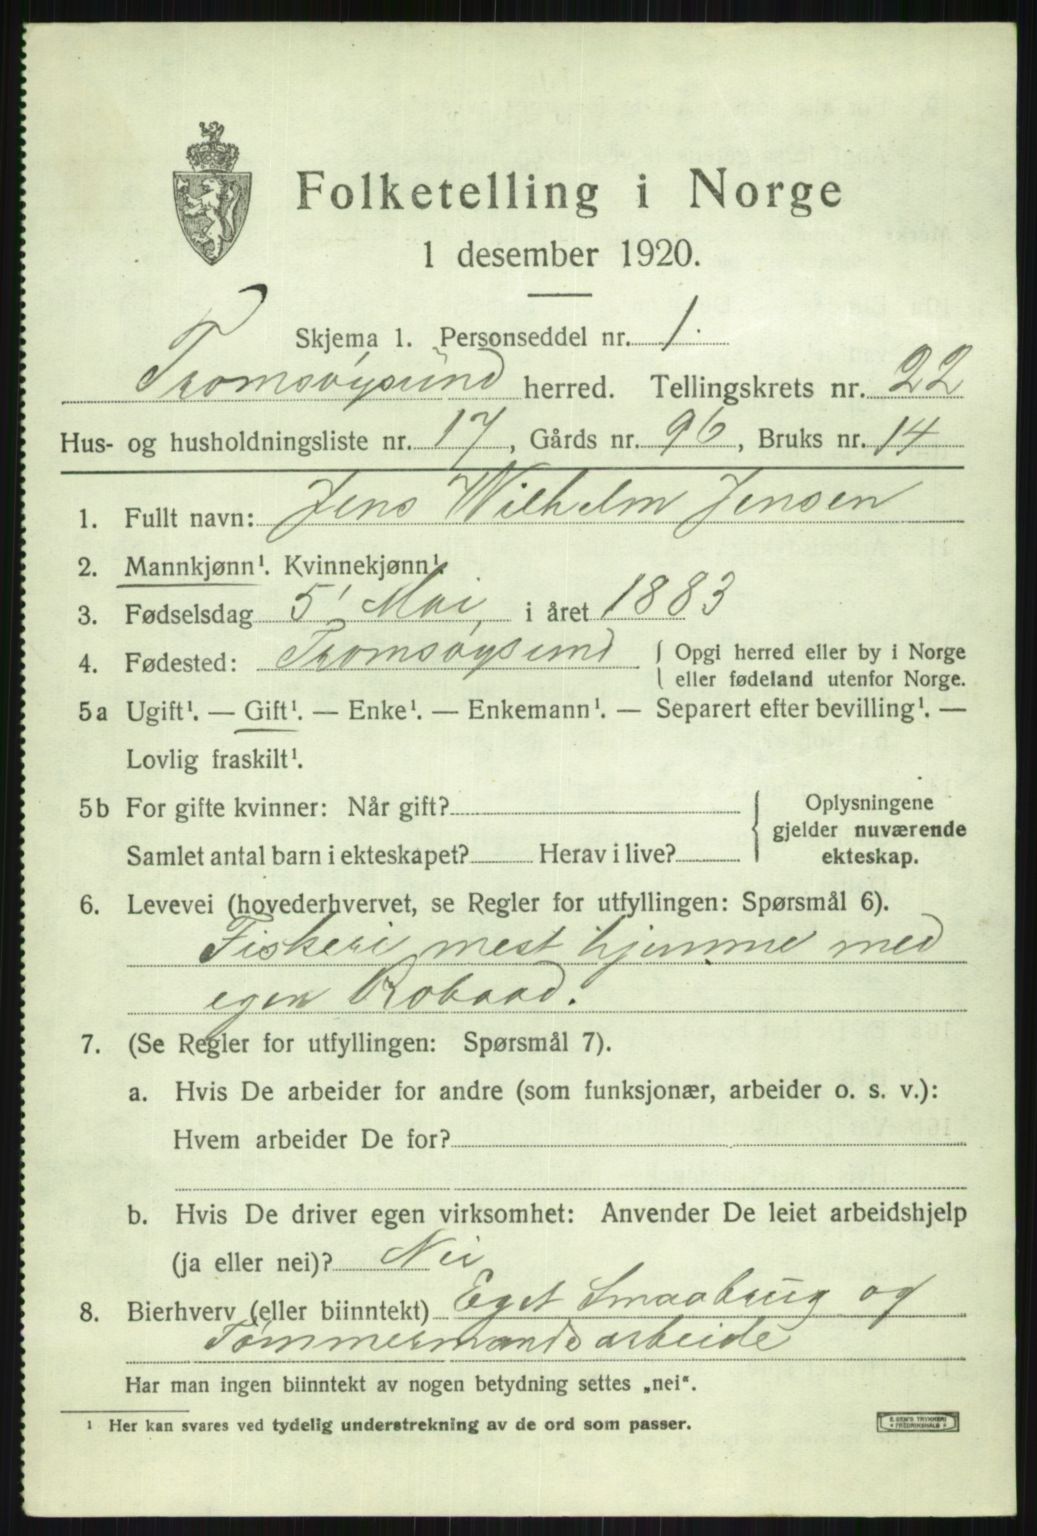 Folketelling i Norge
1 desember 1920.
Skjema 1. Personseddel nr. 1.
Tromsøysund herred. Tellingskrets nr. 22
Hus- og husholdningsliste nr. 17, Gårds nr. 96, Bruks nr. 14
1. Fullt navn: Jens Wilhelm Jensen
2. Mannkjønn¹. Kvinnekjønn¹.
3. Fødselsdag 5' Mai, i året 1883
4. Fødested: Tromsøysund { Opgi herred eller by i Norge
eller fødeland utenfor Norge.
5a Ugift¹. — Gift¹. — Enke¹. — Enkemann¹. — Separert efter bevilling¹. —
Lovlig fraskilt¹.
5b For gifte kvinner: Når gift? { Oplysningene
gjelder nuværende
Samlet antal barn i ekteskapet? Herav i live? ekteskap.
6. Levevei (hovederhvervet, se Regler for utfyllingen: Spørsmål 6).
Fiskeri mest hjemme med
egen Robaad.
7. (Se Regler for utfyllingen: Spørsmål 7).
a. Hvis De arbeider for andre (som funksjonær, arbeider o. s. v.):
Hvem arbeider De for?
b. Hvis De driver egen virksomhet: Anvender De leiet arbeidshjelp
(ja eller nei)? Nei
8. Bierhverv (eller biinntekt) Eget Smaabrug og
Tømmermandsarbeide
Har man ingen biinntekt av nogen betydning settes „nei“.
¹ Her kan svares ved tydelig understrekning av de ord som passer.
E. SEM'S TRYKKERI
* FREDRIKSHALD *